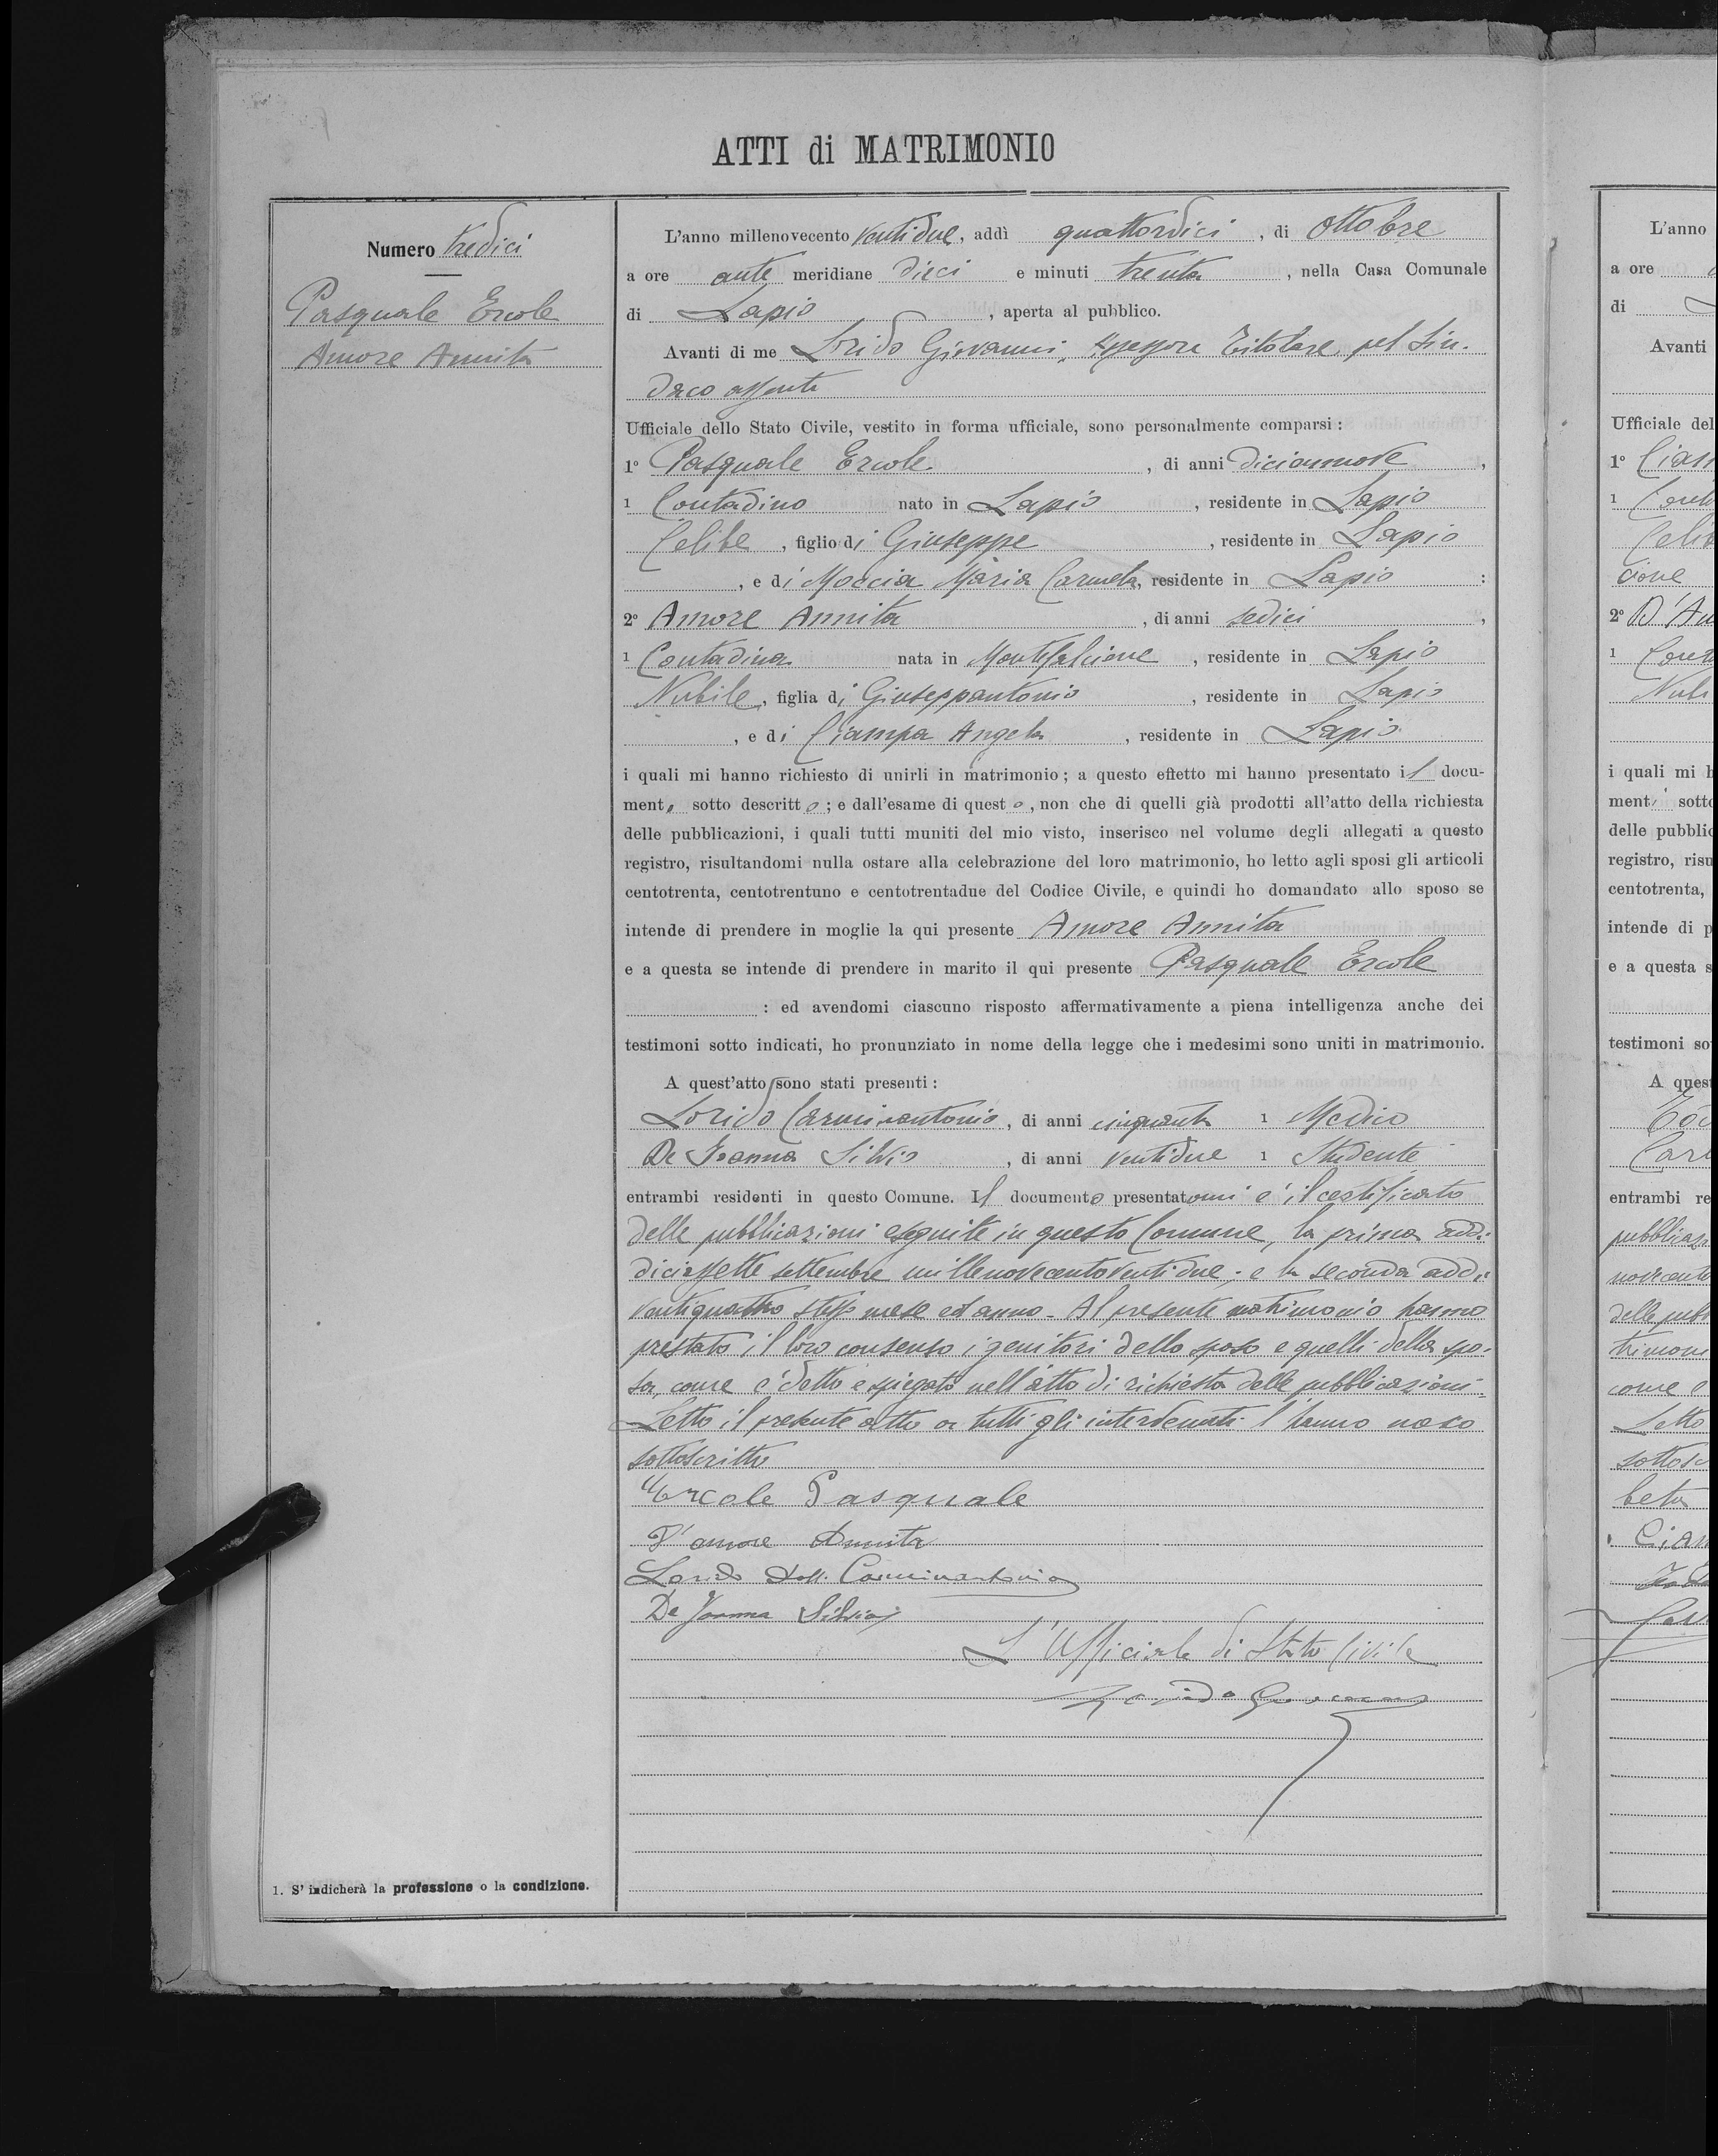 ATTI di MATRIMONIO
Numero tredici
Pasquale Ercole
Amore Annita
L'anno millenovecento ventidue, addì quattordici, di Ottobre
a ore ante meridiane dieci e minuti trenta, nella Casa Comunale
di Lapio, aperta al pubblico.
Avanti di me Lorido Giovanni, Assessore Titolare pel Sin-
daco assente
Ufficiale dello Stato Civile, vestito in forma ufficiale, sono personalmente comparsi:
1° Pasquale Ercole, di anni diciannove,
1 Contadino nato in Lapio, residente in Lapio
Celibe, figlio di Giuseppe, residente in Lapio
, e di Moccia Maria Carmela, residente in Lapio :
2° Amore Annita, di anni sedici,
1 Contadina nata in Montefalcione, residente in Lapio
Nubile, figlia di Giuseppantonio, residente in Lapio
, e di Ciampa Angela, residente in Lapio
i quali mi hanno richiesto di unirli in matrimonio; a questo effetto mi hanno presentato il docu-
mento sotto descritto; e dall'esame di questo, non che di quelli già prodotti all'atto della richiesta
delle pubblicazioni, i quali tutti muniti del mio visto, inserisco nel volume degli allegati a questo
registro, risultandomi nulla ostare alla celebrazione del loro matrimonio, ho letto agli sposi gli articoli
centotrenta, centotrentuno e centotrentadue del Codice Civile, e quindi ho domandato allo sposo se
intende di prendere in moglie la qui presente Amore Annita
e a questa se intende di prendere in marito il qui presente Pasquale Ercole
: ed avendomi ciascuno risposto affermativamente a piena intelligenza anche dei
testimoni sotto indicati, ho pronunziato in nome della legge che i medesimi sono uniti in matrimonio.
A quest'atto sono stati presenti:
Lorido Carminantonio, di anni cinquanta 1 Medico
De Joanna Silvio, di anni ventidue 1 Studente
entrambi residenti in questo Comune. Il documento presentatomi è il certificato
delle pubblicazioni eseguite in questo Comune, la prima addì
diciassette settembre millenovecentoventidue; e la seconda addì
ventiquattro stesso mese ed anno - Al presente matrimonio hanno
prestato il loro consenso i genitori dello sposo e quelli della spo-
sa, come è detto e spiegato nell'atto di richiesta delle pubblicazioni.
Letto il presente atto a tutti gli intervenuti l'hanno meco
sottoscritto
Ercole Pasquale
D'amore Annita
Lorido Dott. Carminantonio
De Joanna Silvio
L'Ufficiale di Stato Civile
Lorido Giovanni
1. S'indicherà la professione o la condizione.
L'anno
a ore
di
Avanti
Ufficiale del
1°
1
2° D'Am
1
i quali mi h
ment sotto
delle pubblic
registro, risu
centotrenta,
intende di p
e a questa s
testimoni so
A quest
entrambi re